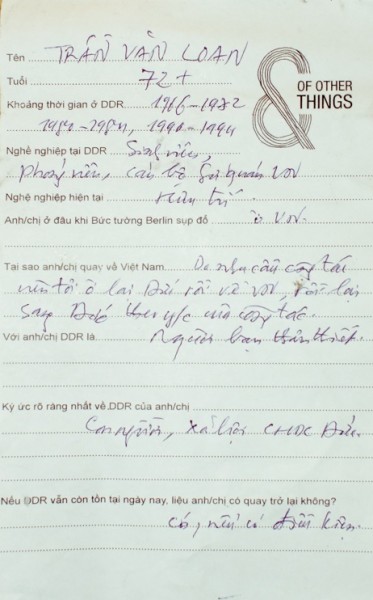 Tên TRẦN VĂN LOAN
& OF OTHER THINGS
Tuổi 72 +
Khoảng thời gian ở DDR 1966-1972
1980-1984, 1990-1994
Nghề nghiệp tại DDR Sinh viên,
phóng viên, cán bộ Sứ quán VN
Nghề nghiệp hiện tại Hưu trí
Anh/chị ở đâu khi Bức tường Berlin sụp đổ ở VN.
Tại sao anh/chị quay về Việt Nam Do nhu cầu công tác
nên tôi ở lại Đức rồi về VN, rồi lại
sang Đức theo y/c của công tác.
Với anh/chị DDR là Người bạn thân thiết.
Ký ức rõ ràng nhất về DDR của anh/chị
Con người, xã hội CHDC Đức
Nếu DDR vẫn còn tồn tại ngày nay, liệu anh/chị có quay trở lại không?
Có, nếu có điều kiện.